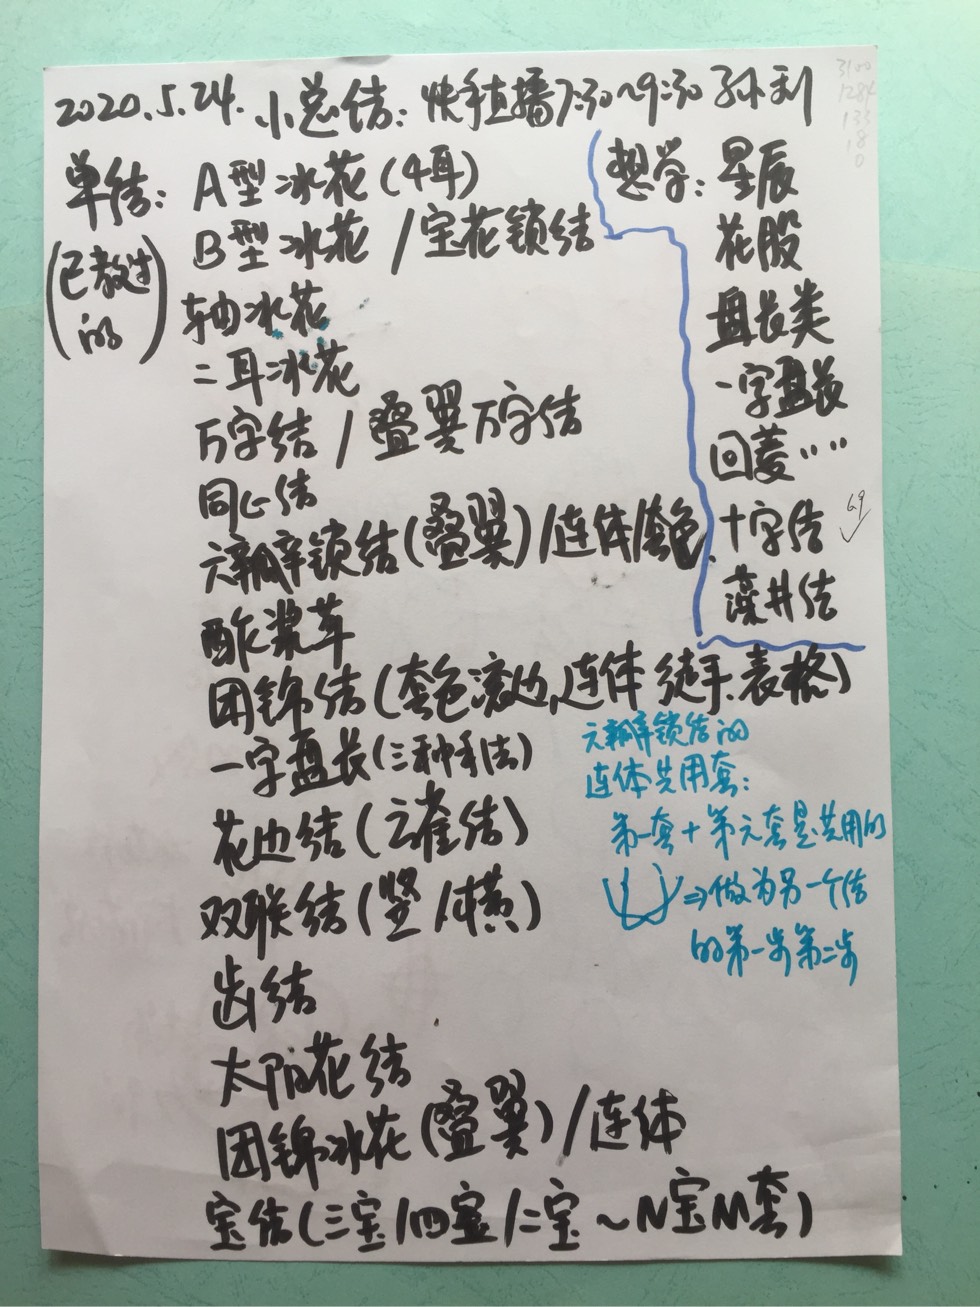 2020.5.24. 小总结：快手直播7:30~9:30 孙利
3100
1284
133
18
0
单结：
(已教过的)
A型冰花(4耳)
B型冰花/宝花锁结
轴冰花
二耳冰花
万字结/叠翼万字结
同心结
六瓣锁结(叠翼)/连体/套色
酢浆草
团锦结(套色滚边、连体 徒手、表格)
一字盘长(三种手法)
花边结(云雀结)
双联结(竖/横)
齿结
太阳花结
团锦冰花(叠翼)/连体
宝结(三宝/四宝/二宝~N宝M套)
想学：星辰
花股
盘长类
一字盘长
回菱……
十字结
藻井结
六瓣锁结的
连体共用套：
第一套+第六套是共用的
⇒做为另一个结
的第一步第二步